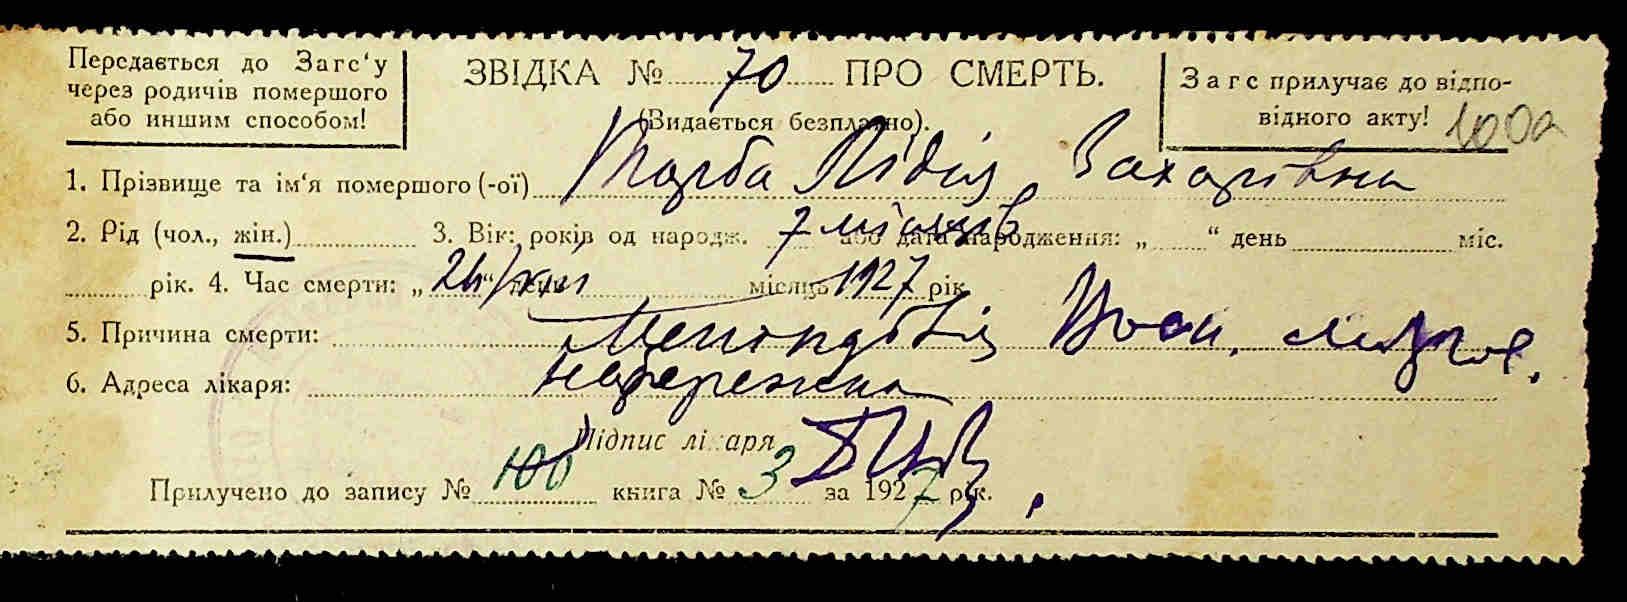 Передається до Загс‘у
через родичів помершого
або иншим способом!
ЗВІДКА № 70 ПРО СМЕРТЬ.
(Видається безплатно).
Загс прилучає до відпо-
відного акту! 100а
1. Прізвище та ім‘я помершого (-ої) Тарба Лідія Захарівна
2. Рід (чол., жін.) 3. Вік: років од народж. 7 місяців або дата народження: „ “ день міс.
рік. 4. Час смерти: „ “ день місяць 1927 рік
5. Причина смерти:
6. Адреса лікаря: набережна
Підпис лікаря
Прилучено до запису № 100 книга № 3 за 1927 рік.